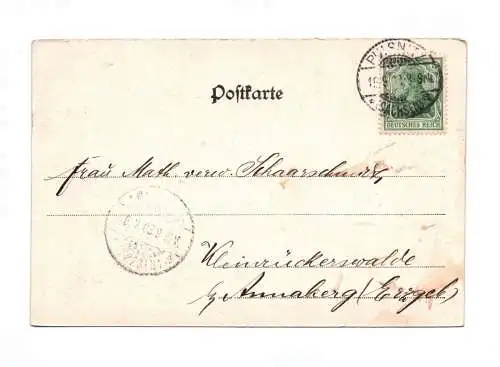 PULSNITZ
(SACHSEN)
DEUTSCHES REICH
Postkarte
Frau Math. verw. Schaarschmidt,
Kleinrückerswalde
b/ Annaberg (Erzgeb.)